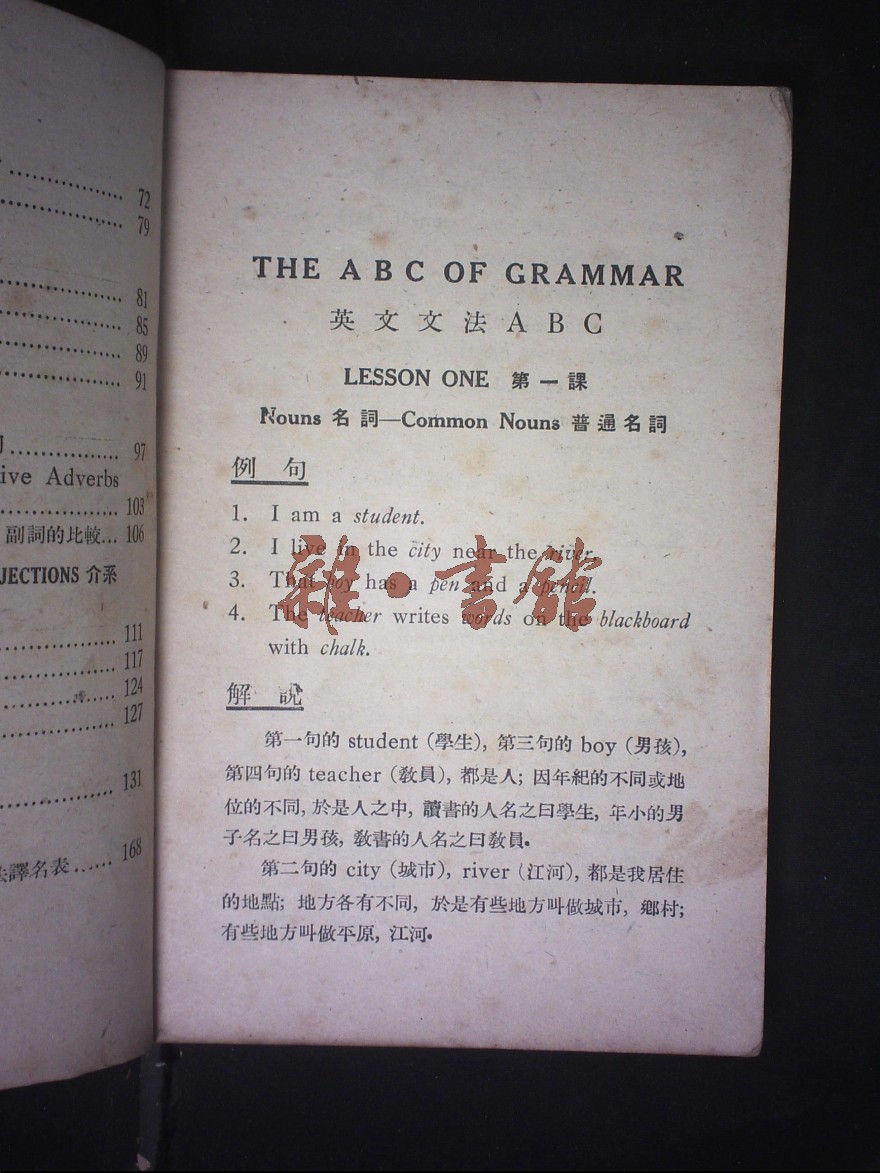 72
79
81
85
89
91
97
ive Adverbs
103
副詞的比較… 106
JECTIONS 介系
111
117
124
127
131
譯名表…… 168
THE A B C OF GRAMMAR
英文文法 A B C
LESSON ONE 第一課
Nouns 名詞—Common Nouns 普通名詞
例句
1. I am a student.
2. I live in the city near the river.
3. That boy has a pen and a pencil.
4. The teacher writes words on the blackboard
with chalk.
解說
第一句的 student (學生), 第三句的 boy (男孩),
第四句的 teacher (教員), 都是人; 因年紀的不同或地
位的不同, 於是人之中, 讀書的人名之曰學生, 年小的男
子名之曰男孩, 教書的人名之曰教員.
第二句的 city (城市), river (江河), 都是我居住
的地點; 地方各有不同, 於是有些地方叫做城市, 鄉村;
有些地方叫做平原, 江河.
雜·書館